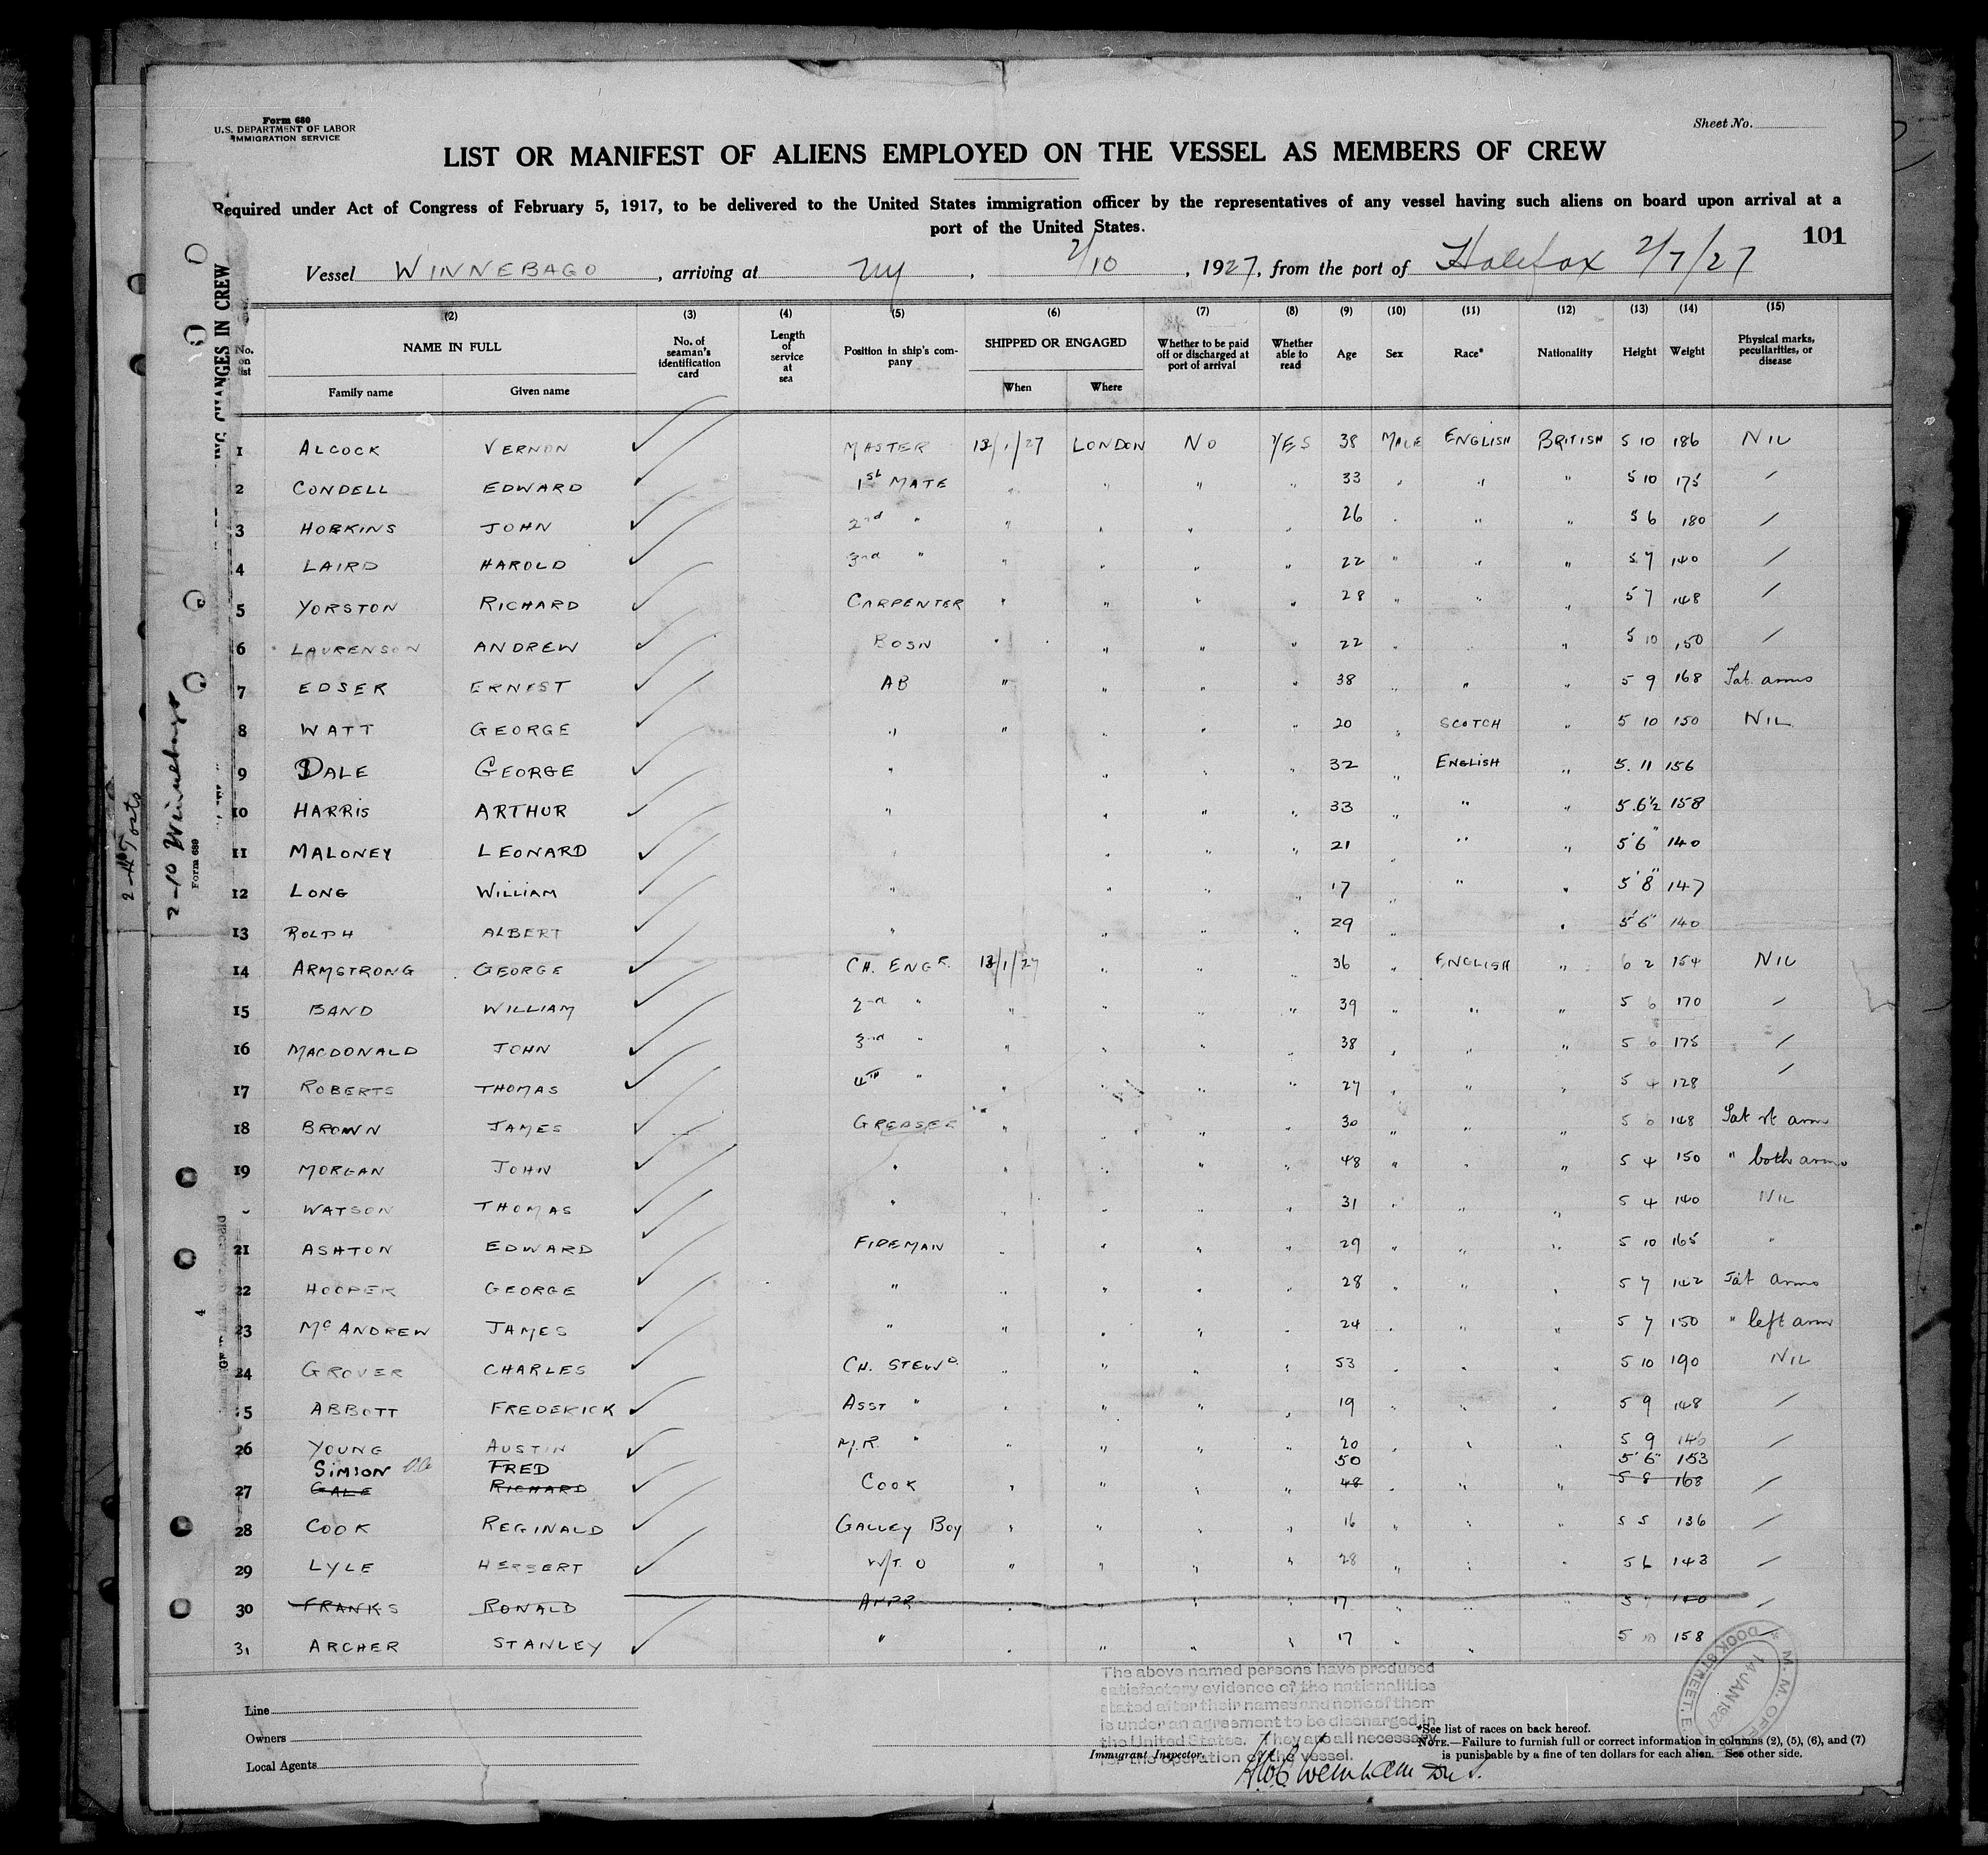 Form 680
U.S. DEPARTMENT OF LABOR
IMMIGRATION SERVICE
Sheet No.
LIST OR MANIFEST OF ALIENS EMPLOYED ON THE VESSEL AS MEMBERS OF CREW
Required under Act of Congress of February 5, 1917, to be delivered to the United States immigration officer by the representatives of any vessel having such aliens on board upon arrival at a
port of the United States.
101
Vessel WINNEBAGO, arriving at NY, 2/10, 1927, from the port of Halifax 2/7/27
(2) (3) (4) (5) (6) (7) (8) (9) (10) (11) (12) (13) (14) (15)
No. on list NAME IN FULL Family name Given name No. of seaman's identification card Length of service at sea Position in ship's company SHIPPED OR ENGAGED When Where Whether to be paid off or discharged at port of arrival Whether able to read Age Sex Race* Nationality Height Weight Physical marks, peculiarities, or disease
1 ALCOCK VERNON MASTER 13/1/27 LONDON NO YES 38 MALE ENGLISH BRITISH 5 10 186 NIL
2 CONDELL EDWARD 1st MATE " " " " 33 " " " 5 10 175 /
3 HOBKINS JOHN 2nd " " " " " 26 " " " 5 6 180 /
4 LAIRD HAROLD 3rd " " " " " 22 " " " 5 7 140 /
5 YORSTON RICHARD CARPENTER " " " " 28 " " " 5 7 148 /
6 LAURENSON ANDREW BOSN " " " " 22 " " " 5 10 150 /
7 EDSER ERNEST AB " " " " 38 " " " 5 9 168 Tat. arms
8 WATT GEORGE " " " " " 20 " SCOTCH " 5 10 150 NIL
9 DALE GEORGE " " " " 32 " ENGLISH " 5. 11 156
10 HARRIS ARTHUR " " " " 33 " " " 5.6½ 158
11 MALONEY LEONARD " " " 21 " " " 5'6" 140
12 LONG WILLIAM " " " " 17 " " " 5'8" 147
13 ROLPH ALBERT " " " " 29 " " 5'6" 140
14 ARMSTRONG GEORGE CH. ENGR. 13/1/27 " " " 36 " ENGLISH " 6 2 154 NIL
15 BAND WILLIAM 2nd " " " " " 39 " " " 5 6 170 /
16 MACDONALD JOHN 3rd " " " " " 38 " " " 5 6 175 /
17 ROBERTS THOMAS 4TH " " " " " 27 " " " 5 4 128 /
18 BROWN JAMES GREASER " " " " 30 " " " 5 6 148 Tat rt arm
19 MORGAN JOHN " " " " " 48 " " " 5 4 150 " both arms
WATSON THOMAS " " " " " 31 " " " 5 4 140 NIL
21 ASHTON EDWARD FIREMAN " " " " 29 " " " 5 10 165 "
22 HOOPER GEORGE " " " " " 28 " " " 5 7 142 Tat arms
23 McANDREW JAMES " " " " " 24 " " " 5 7 150 " left arm
24 GROVER CHARLES CH. STEWD. " " " " 53 " " " 5 10 190 NIL
25 ABBOTT FREDERICK ASST " " " " " 19 " " " 5 9 148 /
26 YOUNG AUSTIN M.R. " " " " " 20 " " " 5 9 146 /
SIMION FRED 50 5' 6" 153
27 GALE RICHARD COOK " " " " 48 " " " 5 8 168 /
28 COOK REGINALD GALLEY BOY " " " " 16 " " " 5 5 136 /
29 LYLE HERBERT W/T. O " " " " 28 " " " 5 6 143 /
30 FRANKS RONALD APPR " " " " 17 " " " 5 140 /
31 ARCHER STANLEY " " " " " 17 " " 5 10 158 /
Line
Owners
Local Agents
The above named persons have produced
satisfactory evidence of the nationalities
stated after their names and none of them
is under an agreement to be discharged in
the United States. They are all necessary
for the operation of the vessel.
Immigrant Inspector.
*See list of races on back hereof.
NOTE.—Failure to furnish full or correct information in columns (2), (5), (6), and (7)
is punishable by a fine of ten dollars for each alien. See other side.
M. M. OFFICE
14 JAN 1927
DOCK STREET. E.
2-10 Winnebago
Form 689
CHANGES IN CREW